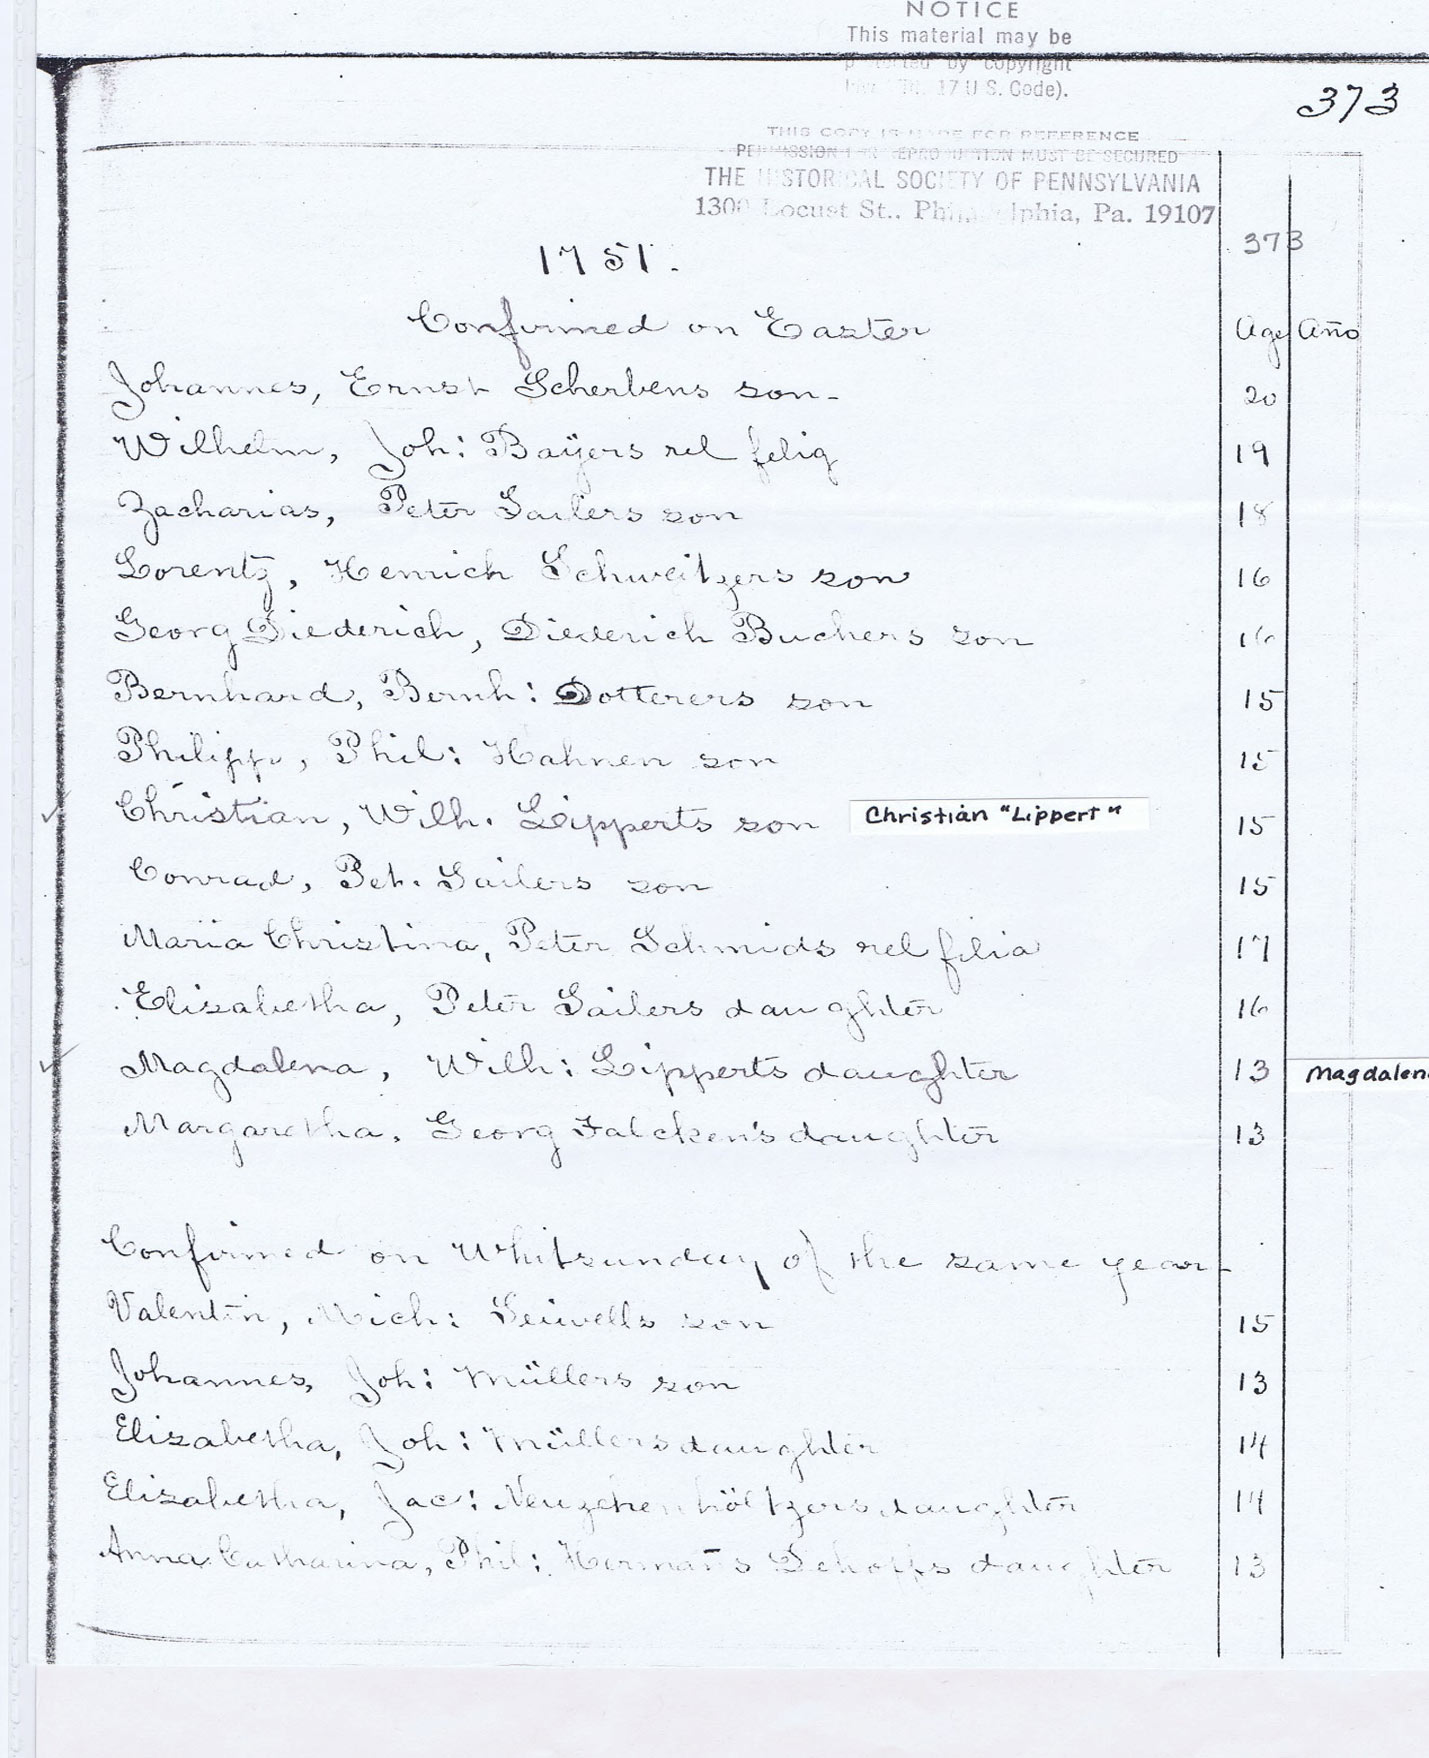 NOTICE
This material may be
protected by copyright
17 U S. Code).
373
THIS COPY IS MADE FOR REFERENCE
PERMISSION FOR REPRODUCTION MUST BE SECURED
THE HISTORICAL SOCIETY OF PENNSYLVANIA
1300 Locust St., Philadelphia, Pa. 19107
373
1751.
Confirmed on Easter Age Año
Johannes, Ernst Scherbens son- 20
Wilhelm, Joh: Baÿers rel felig 19
Zacharias, Peter Sailers son 18
Lorentz, Henrich Schweitzers son 16
Georg Diederich, Diederich Buchers son 16
Bernhard, Bernh: Dotterers son 15
Philipp, Phil: Hahnen son 15
Christian, Wilh. Lipperts son Christian "Lippert" 15
Conrad, Pet. Sailers son 15
Maria Christina, Peter Schmids rel filia 17
Elisabetha, Peter Sailers daughter 16
Magdalena, Wilh: Lipperts daughter 13 Magdalena
Margaretha, Georg Falcken's daughter 13
Confirmed on Whitsunday of the same year-
Valentin, Mich: son 15
Johannes, Joh: Müllers son 13
Elisabetha, Joh: Müllers daughter 14
Elisabetha, Jac: Neuzehenhöltzers daughter 14
Anna Catharina, Phil: Hermañs Schoffs daughter 13